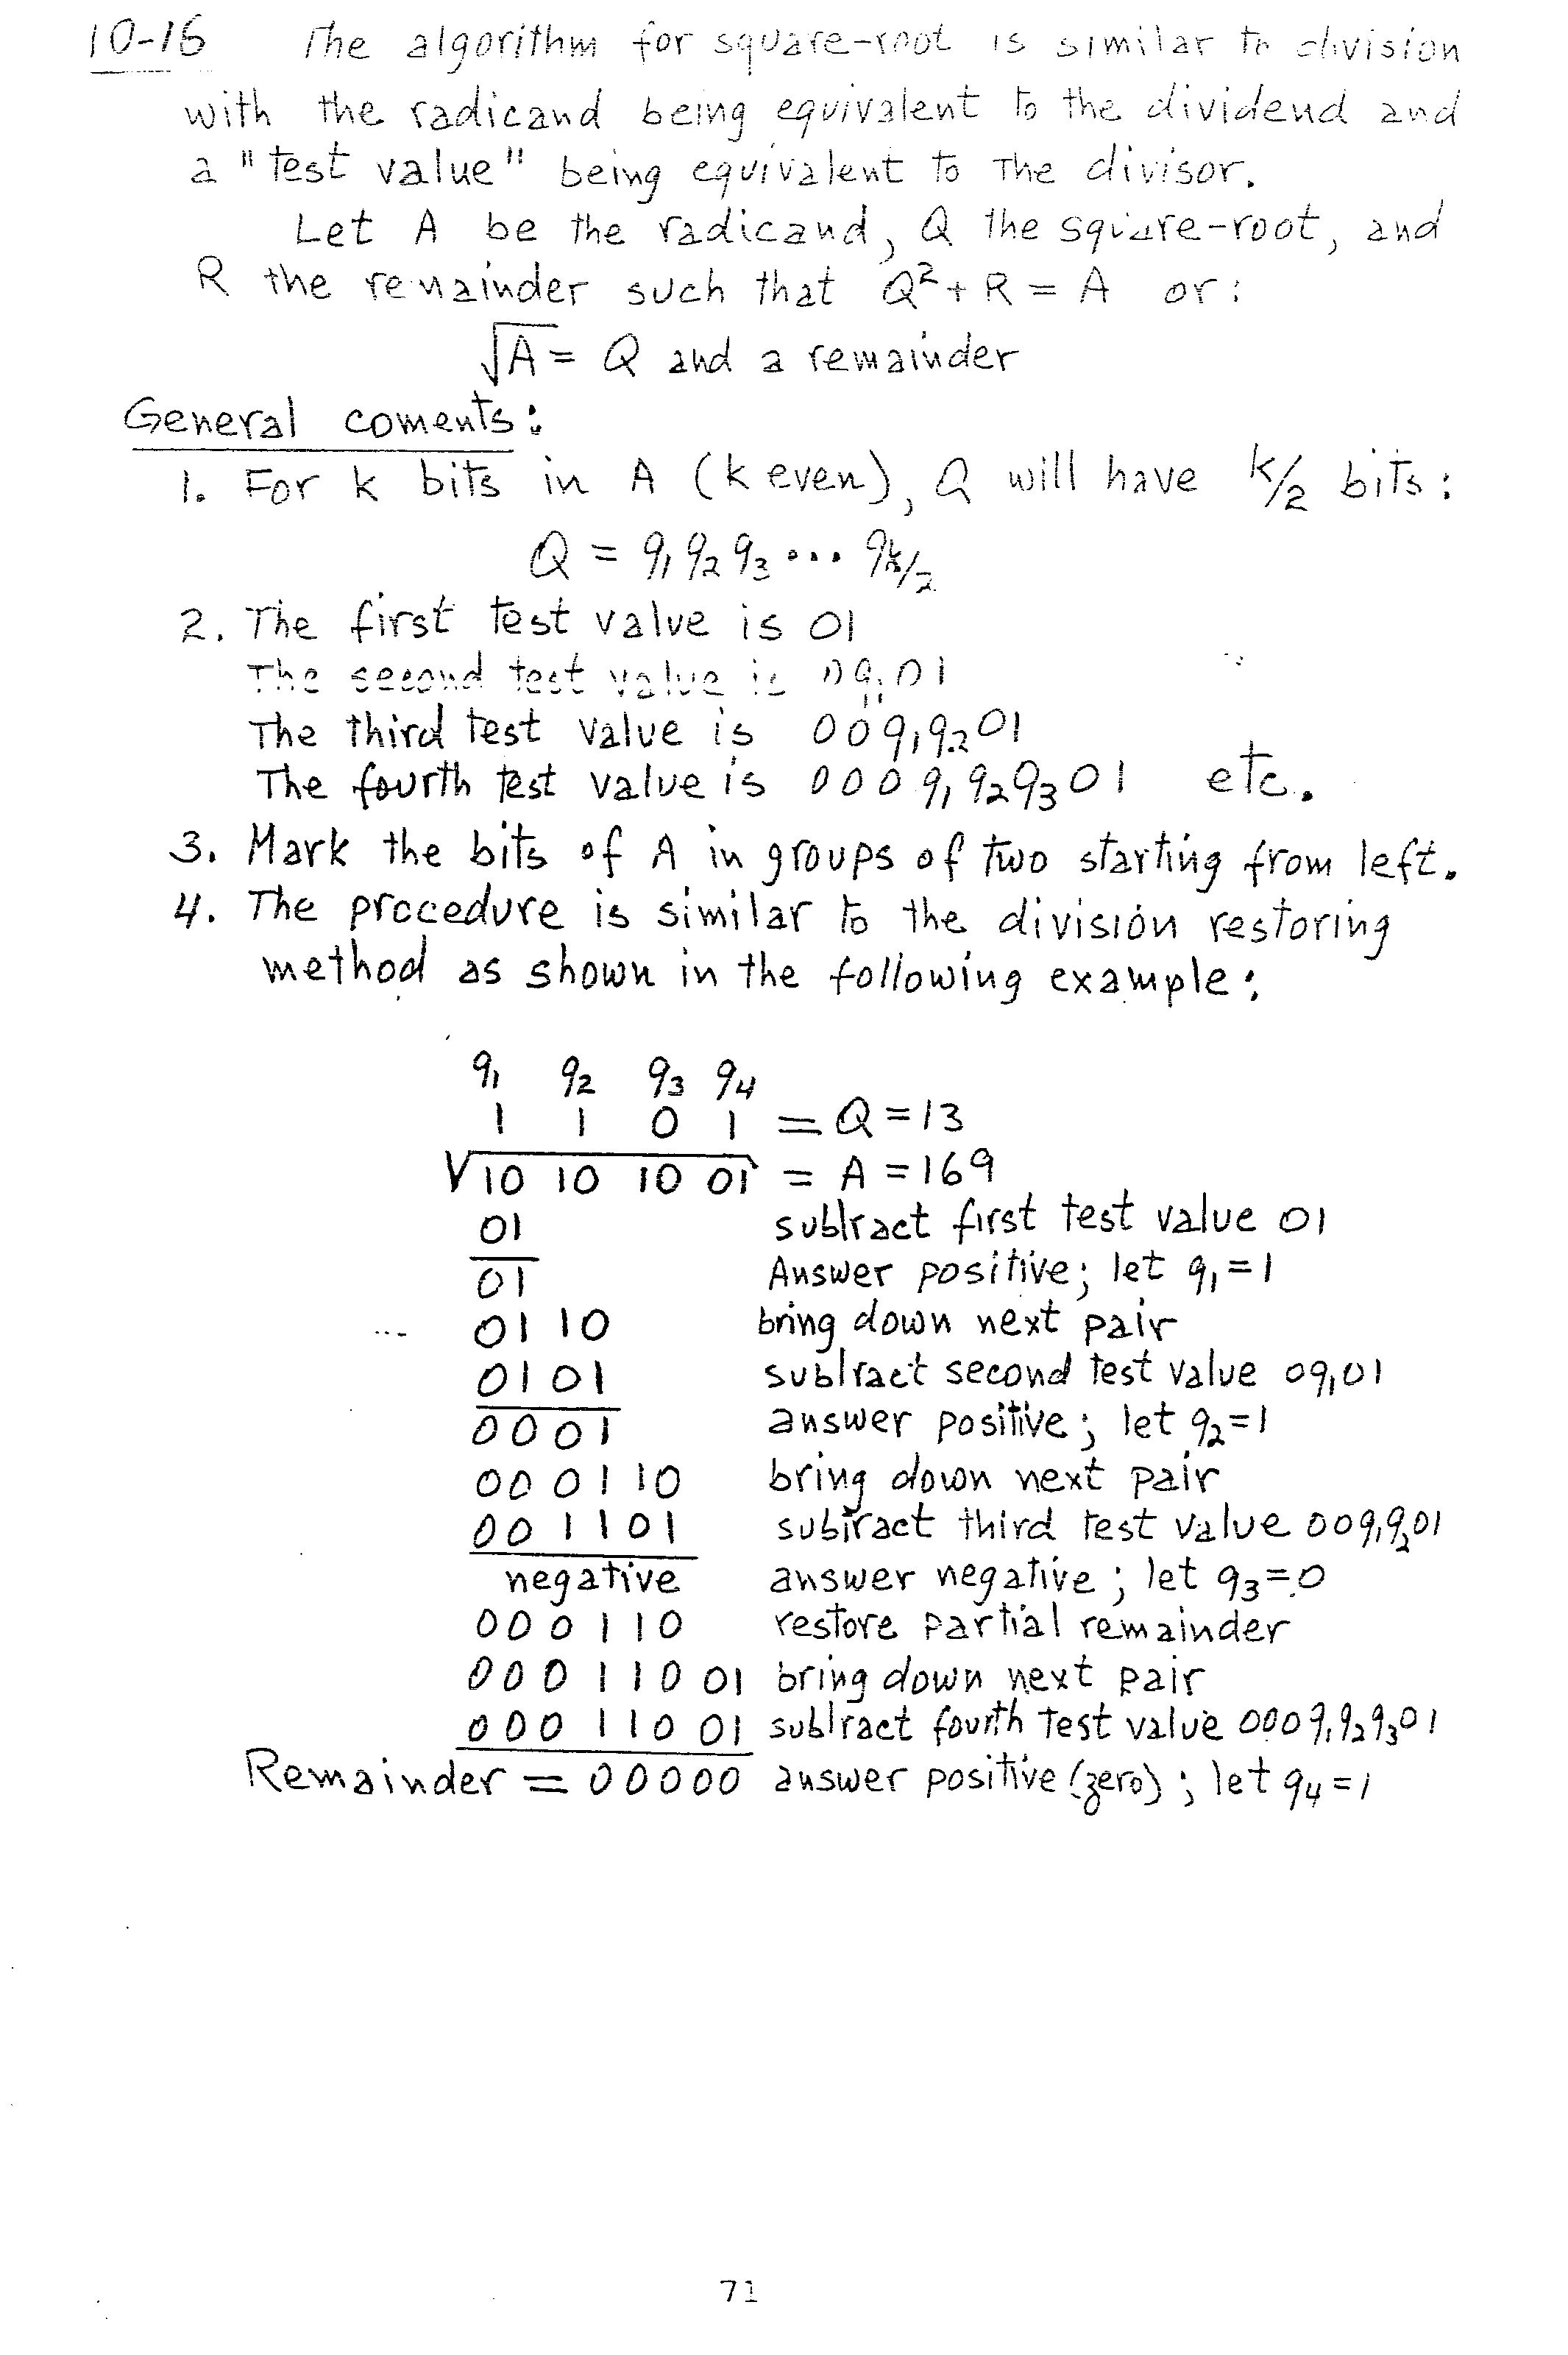 10-16 The algorithm for square-root is similar to division
with the radicand being equivalent to the dividend and
a "test value" being equivalent to the divisor.
Let A be the radicand, Q the square-root, and
R the remainder such that Q² + R = A or:
√A = Q and a remainder
General coments:
1. For k bits in A (k even), Q will have k/2 bits:
Q = q₁ q₂ q₃ ... qk/2
2. The first test value is 01
The second test value is 0q₁01
The third test value is 00q₁q₂01
The fourth test value is 000q₁q₂q₃01 etc.
3. Mark the bits of A in groups of two starting from left.
4. The procedure is similar to the division restoring
method as shown in the following example:
q₁ q₂ q₃ q₄
1 1 0 1 = Q = 13
√10 10 10 01 = A = 169
01 subtract first test value 01
01 Answer positive; let q₁ = 1
01 10 bring down next pair
01 01 subtract second test value 0q₁01
00 01 answer positive; let q₂ = 1
00 01 10 bring down next pair
00 11 01 subtract third test value 00q₁q₂01
negative answer negative; let q₃ = 0
00 01 10 restore partial remainder
00 01 10 01 bring down next pair
00 01 10 01 subtract fourth test value 000q₁q₂q₃01
Remainder = 00000 answer positive (zero); let q₄ = 1
71